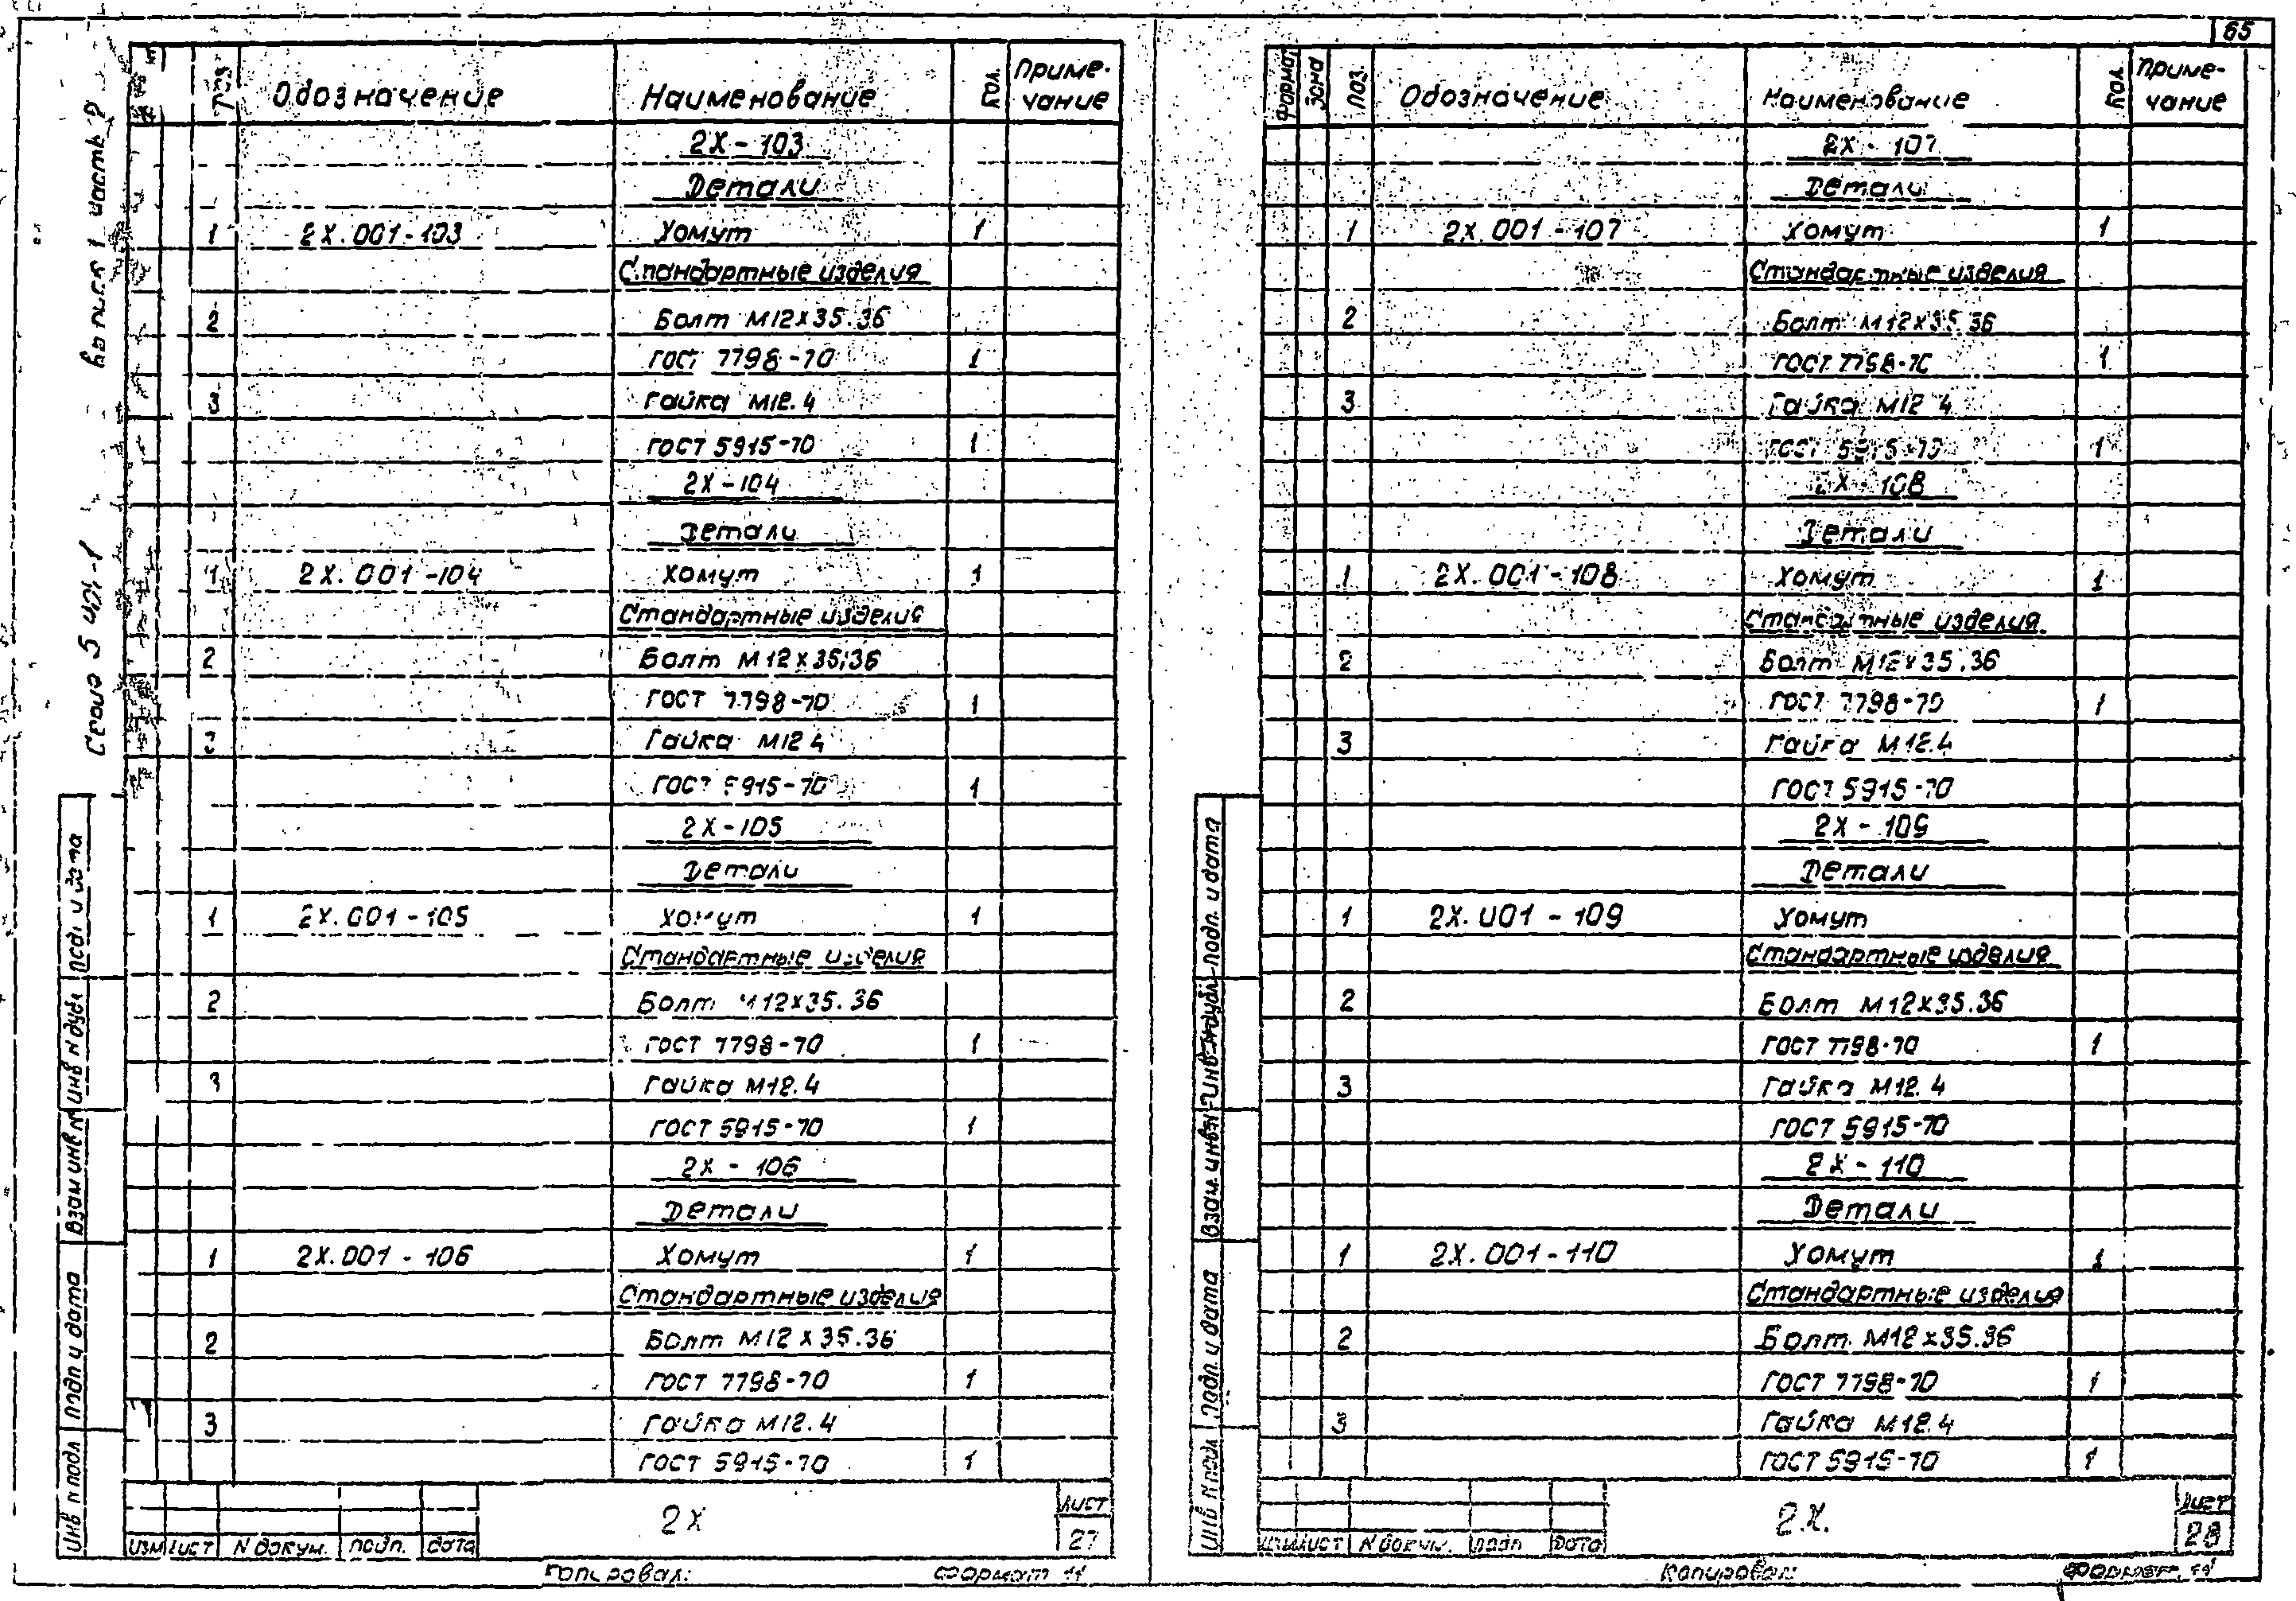 65
Серия 5 Выпуск 1 часть 2
Поз. Обозначение Наименование Кол. Приме-
чание
2Х - 103
Детали
1 2Х.001-103 Хомут 1
Стандартные изделия
2 Болт М12х35.36
ГОСТ 7798-70 1
3 Гайка М12.4
ГОСТ 5915-70 1
2Х-104
Детали
1 2Х.001-104 Хомут 1
Стандартные изделия
2 Болт М12х35.36
ГОСТ 7798-70 1
3 Гайка М12 4
ГОСТ 5915-70 1
2Х-105
Детали
1 2Х.001-105 Хомут 1
Стандартные изделия
2 Болт М12х35.36
ГОСТ 7798-70 1
3 Гайка М12.4
ГОСТ 5915-70 1
2Х - 106
Детали
1 2Х.001 - 106 Хомут 1
Стандартные изделия
2 Болт М12х35.36
ГОСТ 7798-70 1
3 Гайка М12.4
ГОСТ 5915-70 1
Инв N подл Подп и дата Взам инв N Инв N дубл Подп и дата
Изм Лист N докум. Подп. Дата
2Х
Лист
27
Копировал: Формат 11
Формат Зона Поз. Обозначение Наименование Кол Приме-
чание
2Х - 107
Детали
1 2Х.001-107 Хомут 1
Стандартные изделия
2 Болт М12х35.36
ГОСТ 7798-70 1
3 Гайка М12 4
ГОСТ 5915-70 1
2Х - 108
Детали
1 2Х.001-108 Хомут 1
Стандартные изделия
2 Болт М12х35.36
ГОСТ 7798-70 1
3 Гайка М12.4
ГОСТ 5915-70
2Х - 109
Детали
1 2Х.001 - 109 Хомут
Стандартные изделия
2 Болт М12х35.36
ГОСТ 7798-70 1
3 Гайка М12.4
ГОСТ 5915-70
2Х - 110
Детали
1 2Х.001-110 Хомут 1
Стандартные изделия
2 Болт М12х35.36
ГОСТ 7798-70 1
3 Гайка М12.4
ГОСТ 5915-70 1
Инв N подл Подп. и дата Взам. инв N Инв N дубл. Подп. и дата
Изм Лист N докум. Подп Дата
2Х.
Лист
28
Копировал Формат 11